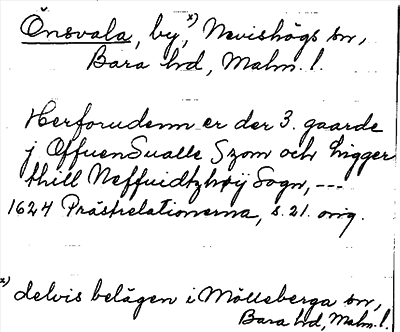 Önsvala, by,ˣ⁾ Nevishögs sn,
Bara hd, Malm. l.
Herforudenn er der 3. gaarde
j Offuen Sualle Szom och ligger
thill Neffuidtzhøÿ Sogn, ---
1624 Prästrelationerna, s. 21. orig.
ˣ⁾ delvis belägen i Mölleberga sn,
Bara hd, Malm. l.